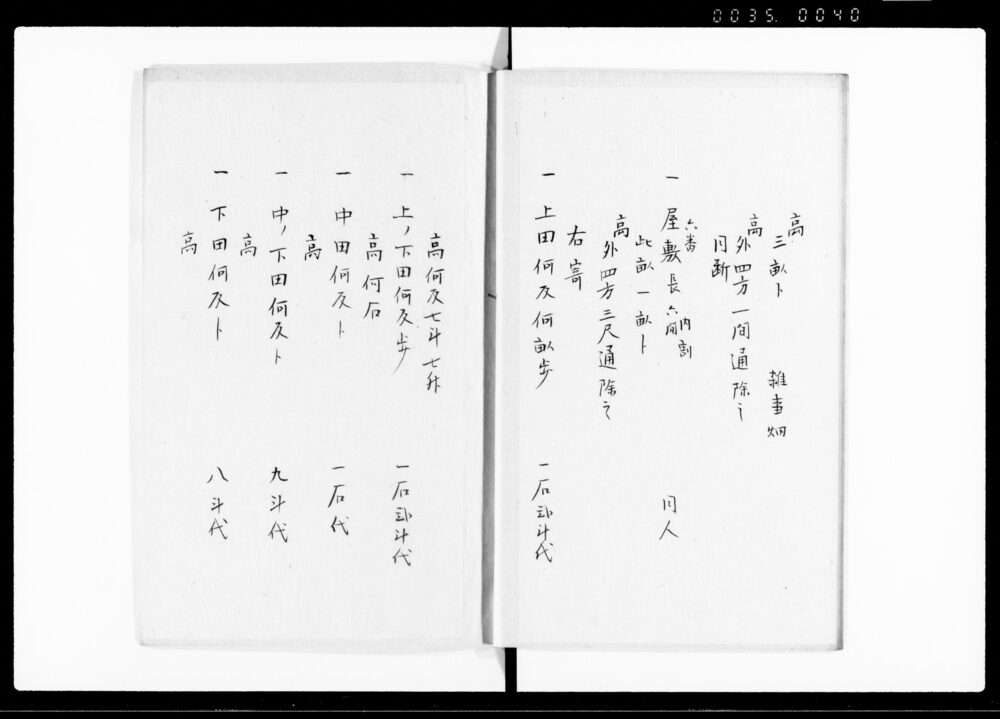 0035. 0040
高
三畝卜 雑事畑
高外四方一間通除之
同断
六番
一 屋敷長六間 内割 同人
此畝一畝卜
高外四方三尺通除之
右寄
一 上田何反何畝歩 一石弐斗代
高何反七斗七升
一 上ノ下田何反歩 一石弐斗代
高何石
一 中田何反卜 一石代
高
一 中ノ下田何反卜 九斗代
高
一 下田何反卜 八斗代
高